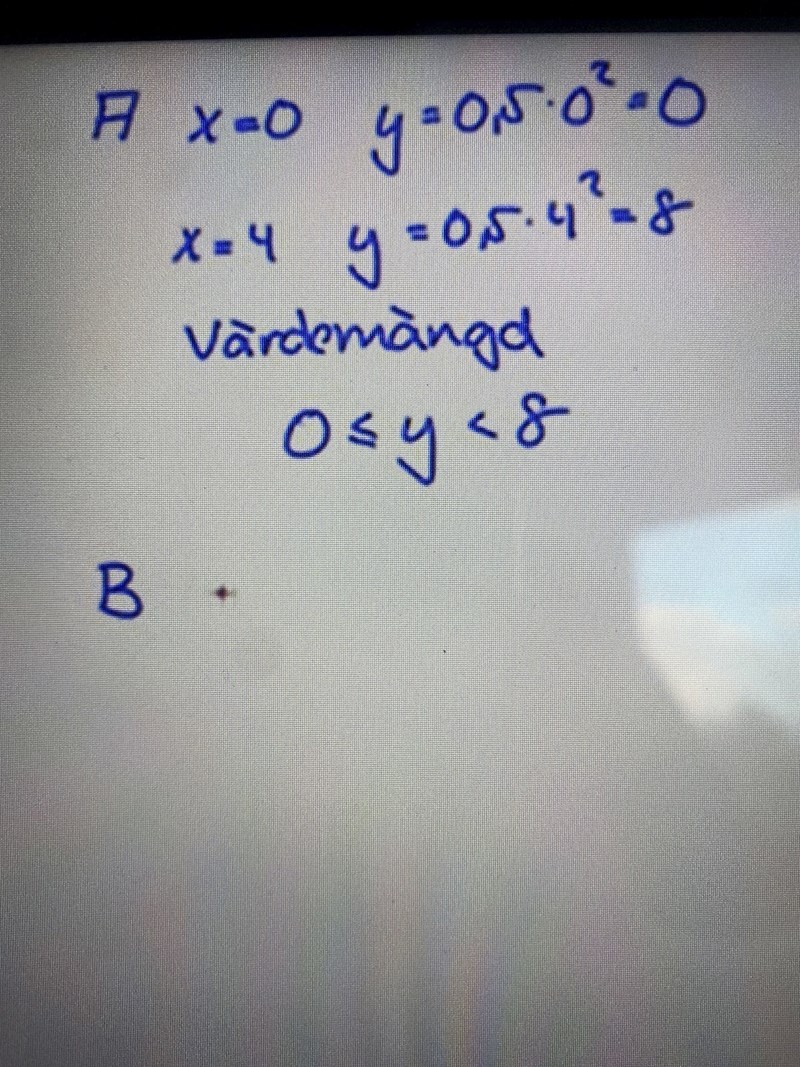 A x=0 y=0,5·0²=0
x=4 y=0,5·4²=8
Värdemängd
0≤y<8
B